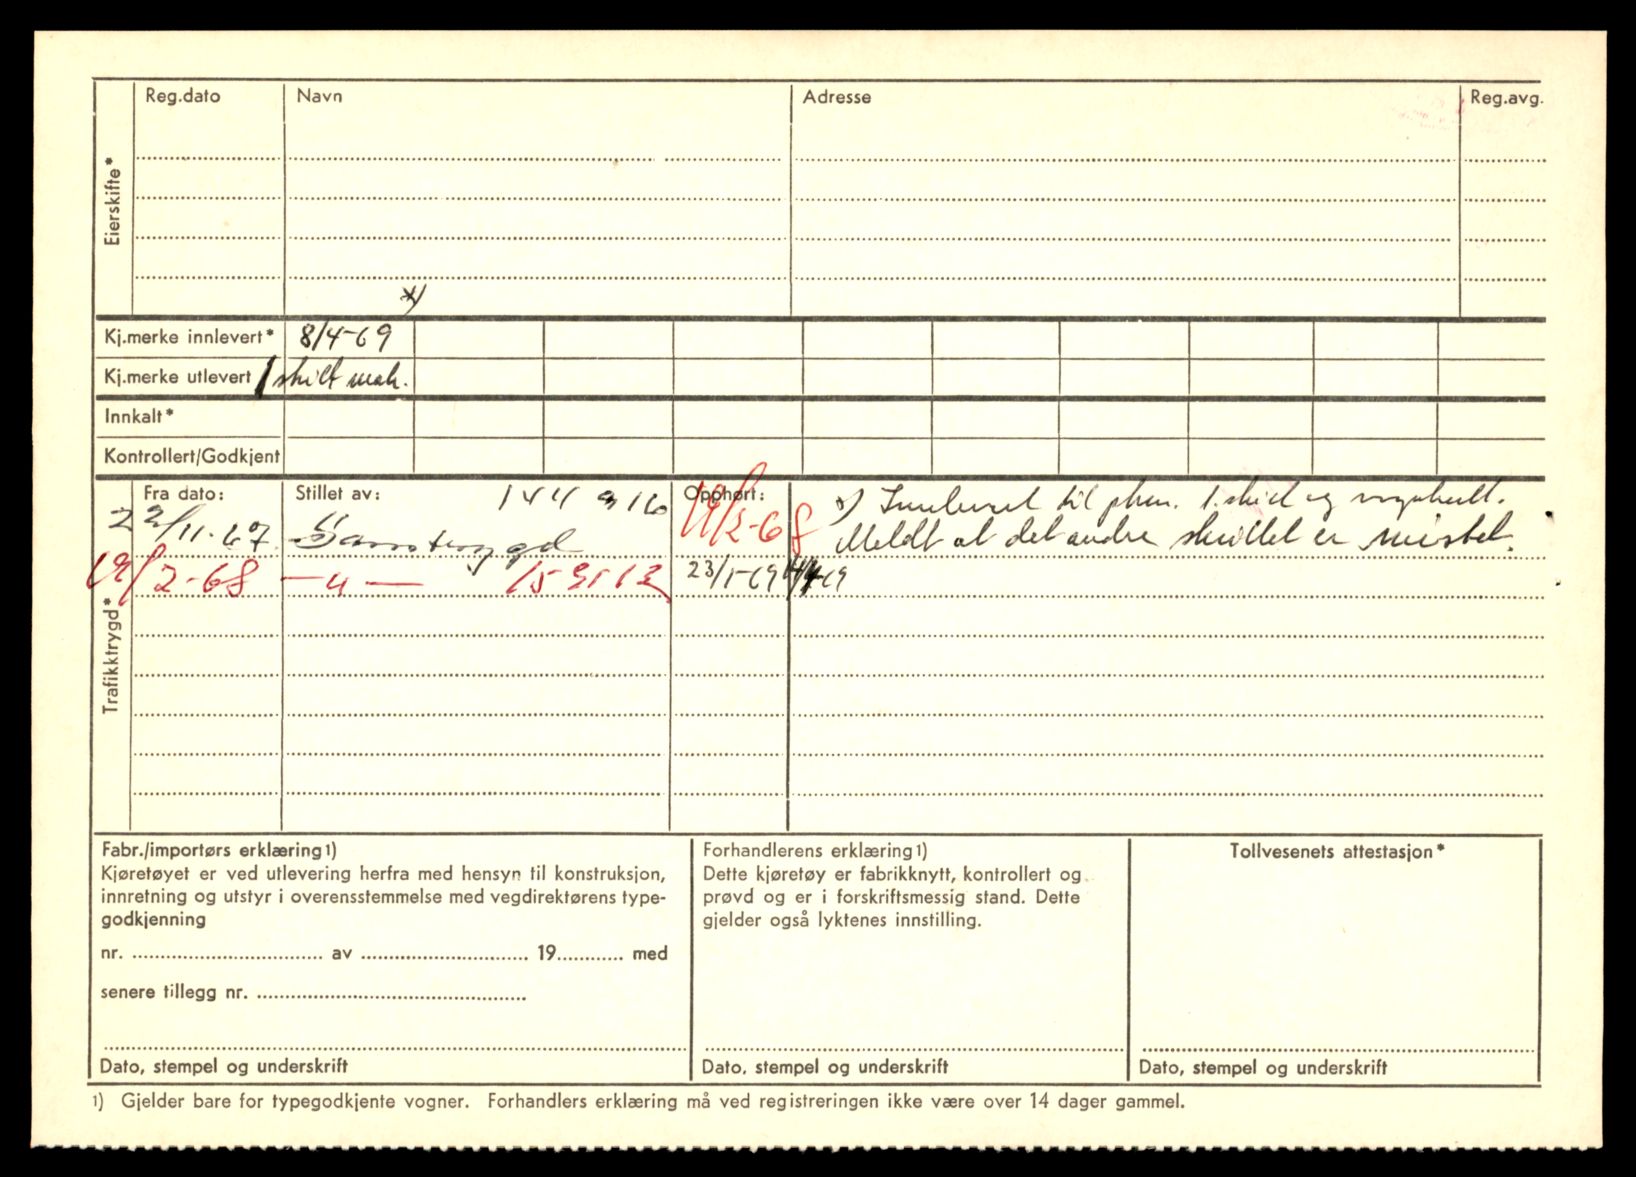 Reg.dato Navn Adresse Reg.avg.
Eierskifte*
*)
Kj.merke innlevert* 8/4-69
Kj.merke utlevert 1 skilt mak.
Innkalt*
Kontrollert/Godkjent
Trafikktrygd*
Fra dato: Stillet av: Opphørt:
22/11-67 Samtrygd 144 916 19/2-68
19/2-68 —"— 159112 23/1-69 14/4-69
*) Innlevert til phm. 1. skilt og vognkort.
Meldt at det andre skiltet er mistet.
Fabr./importørs erklæring 1)
Kjøretøyet er ved utlevering herfra med hensyn til konstruksjon,
innretning og utstyr i overensstemmelse med vegdirektørens type-
godkjenning
nr. .................... av .................... 19............ med
senere tillegg nr. ....................
Dato, stempel og underskrift
Forhandlerens erklæring 1)
Dette kjøretøy er fabrikknytt, kontrollert og
prøvd og er i forskriftsmessig stand. Dette
gjelder også lyktenes innstilling.
Dato, stempel og underskrift
Tollvesenets attestasjon*
Dato, stempel og underskrift
1) Gjelder bare for typegodkjente vogner. Forhandlers erklæring må ved registreringen ikke være over 14 dager gammel.